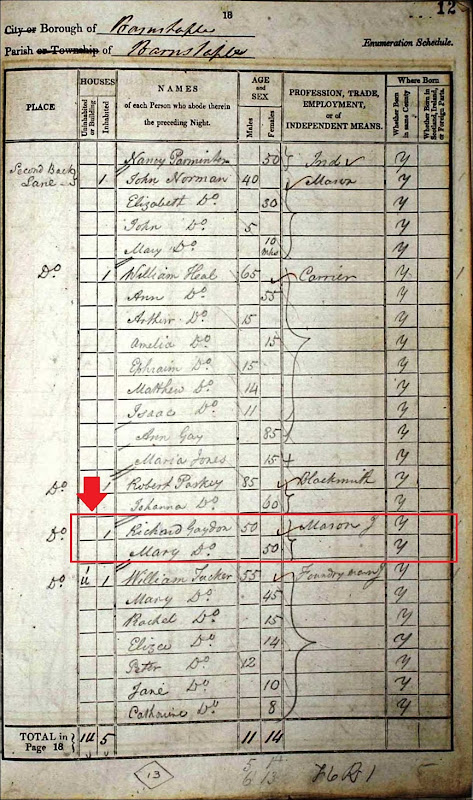 18
12
City or Borough of Barnstaple
Parish or Township of Barnstaple Enumeration Schedule.
PLACE
HOUSES
Uninhabited or Building
Inhabited
NAMES of each Person who abode therein the preceding Night.
AGE and SEX
Males
Females
PROFESSION, TRADE, EMPLOYMENT, or of INDEPENDENT MEANS.
Where Born
Whether Born in same County
Whether Born in Scotland, Ireland, or Foreign Parts.
Nancy Parminter 50 Ind Y
Second Back Lane 1 John Norman 40 Mason Y
Elizabeth Do 30 Y
John Do 5 Y
Mary Do 10 Mhs Y
Do 1 William Heal 65 Carrier Y
Ann Do 55 Y
Arthur Do 15 Y
Amelia Do 15 Y
Ephraim Do 15 Y
Matthew Do 14 Y
Isaac Do 11 Y
Ann Gay 85 Y
Maria Jones 15 Y
Do 1 Robert 85 Blacksmith Y
Johanna Do 60 Y
Do 1 Richard Gaydon 50 Mason J Y
Mary Do 50 Y
Do 1 William Tucker 55 Foundryman J Y
Mary Do 45 Y
Rachel Do 15 Y
Eliza Do 14 Y
Peter Do 12 Y
Jane Do 10 Y
Catherine Do 8 Y
TOTAL in Page 18 5 11 14
13
5 14
6 13